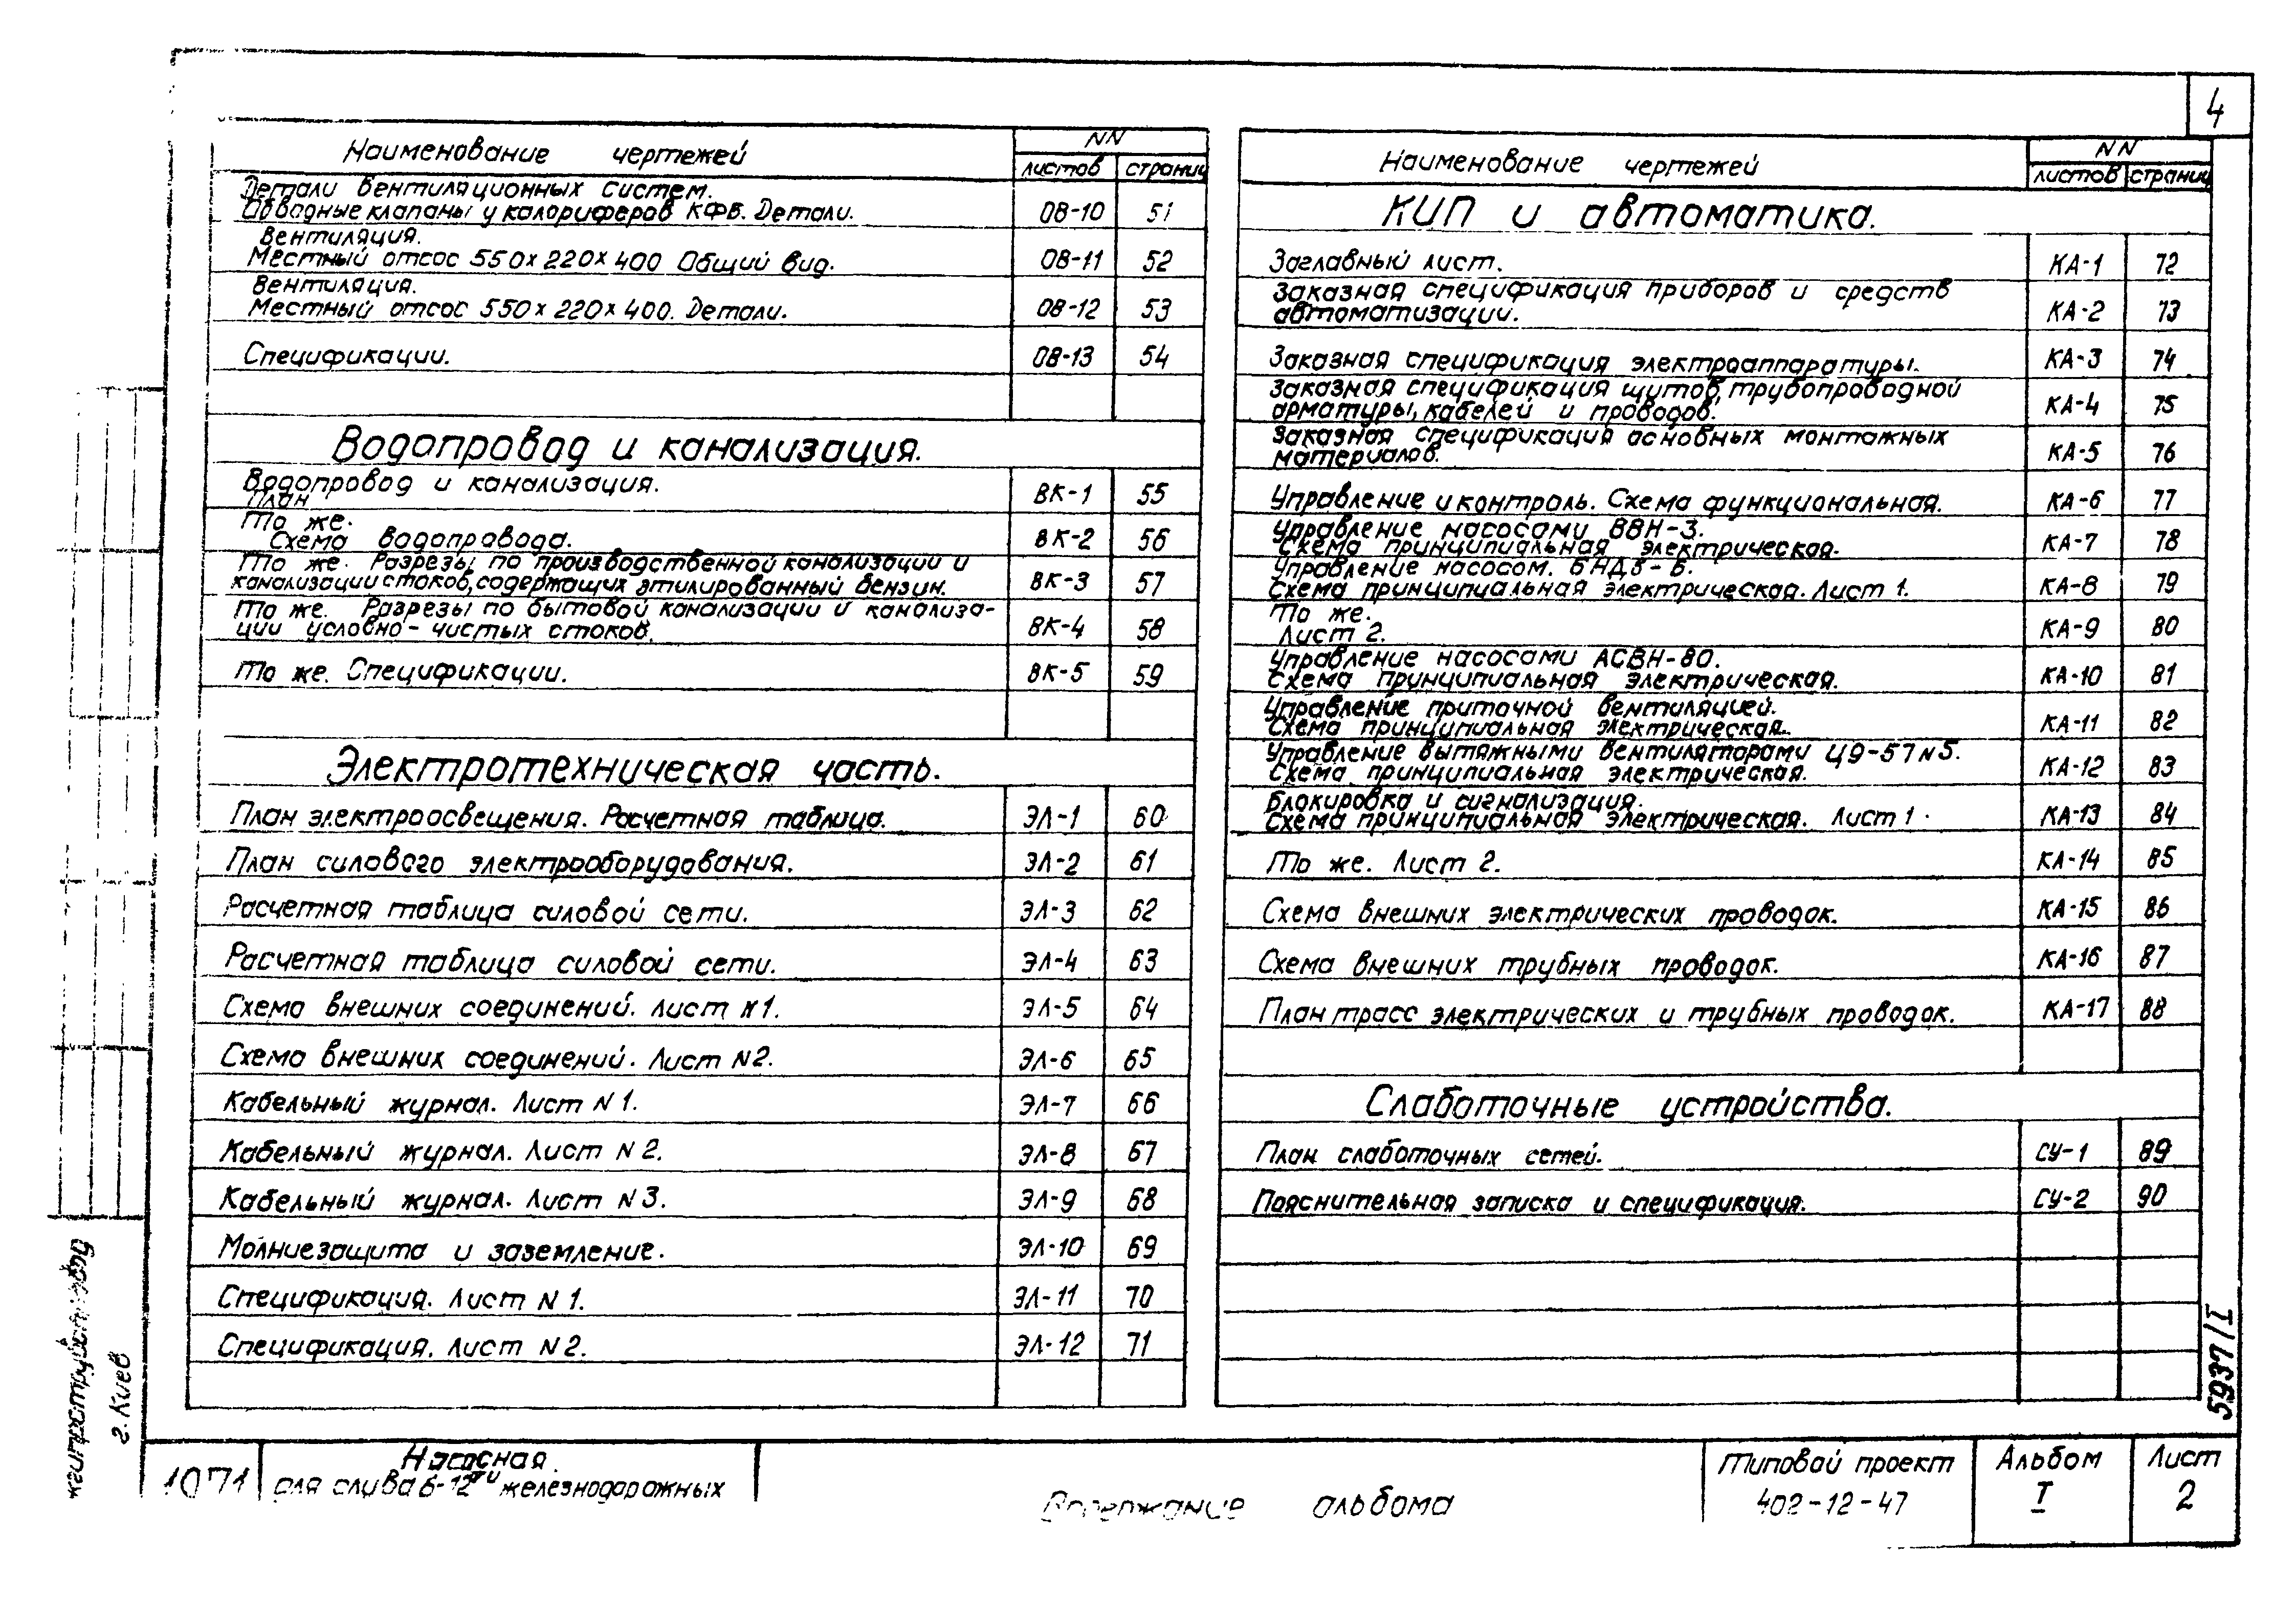 4
Наименование чертежей NN
листов страниц
Детали вентиляционных систем.
Обводные клапаны у калориферов КФВ. Детали. ОВ-10 51
Вентиляция.
Местный отсос 550х220х400 Общий вид. ОВ-11 52
Вентиляция.
Местный отсос 550х220х400. Детали. ОВ-12 53
Спецификации. ОВ-13 54
Водопровод и канализация.
Водопровод и канализация.
План ВК-1 55
То же.
Схема водопровода. ВК-2 56
То же. Разрезы по производственной канализации и
канализации стоков, содержащих этилированный бензин. ВК-3 57
То же. Разрезы по бытовой канализации и канализа-
ции условно-чистых стоков. ВК-4 58
То же. Спецификации. ВК-5 59
Электротехническая часть.
План электроосвещения. Расчетная таблица. ЭЛ-1 60
План силового электрооборудования. ЭЛ-2 61
Расчетная таблица силовой сети. ЭЛ-3 62
Расчетная таблица силовой сети. ЭЛ-4 63
Схема внешних соединений. Лист N1. ЭЛ-5 64
Схема внешних соединений. Лист N2. ЭЛ-6 65
Кабельный журнал. Лист N1. ЭЛ-7 66
Кабельный журнал. Лист N2. ЭЛ-8 67
Кабельный журнал. Лист N3. ЭЛ-9 68
Молниезащита и заземление. ЭЛ-10 69
Спецификация. Лист N1. ЭЛ-11 70
Спецификация. Лист N2. ЭЛ-12 71
Наименование чертежей NN
листов страниц
КИП и автоматика.
Заглавный лист. КА-1 72
Заказная спецификация приборов и средств
автоматизации. КА-2 73
Заказная спецификация электроаппаратуры. КА-3 74
Заказная спецификация щитов, трубопроводной
арматуры, кабелей и проводов. КА-4 75
Заказная спецификация основных монтажных
материалов. КА-5 76
Управление и контроль. Схема функциональная. КА-6 77
Управление насосами ВВН-3.
Схема принципиальная электрическая. КА-7 78
Управление насосом.
Схема принципиальная электрическая. Лист 1. КА-8 79
То же.
Лист 2. КА-9 80
Управление насосами АСВН-80.
Схема принципиальная электрическая. КА-10 81
Управление приточной вентиляцией.
Схема принципиальная электрическая. КА-11 82
Управление вытяжными вентиляторами Ц9-57 N5.
Схема принципиальная электрическая. КА-12 83
Блокировка и сигнализация.
Схема принципиальная электрическая. Лист 1. КА-13 84
То же. Лист 2. КА-14 85
Схема внешних электрических проводок. КА-15 86
Схема внешних трубных проводок. КА-16 87
План трасс электрических и трубных проводок. КА-17 88
Слаботочные устройства.
План слаботочных сетей. СУ-1 89
Пояснительная записка и спецификация. СУ-2 90
г. Киев
5937/I
1071
Насосная
для слива 6-12ти железнодорожных
Содержание альбома
Типовой проект
402-12-47
Альбом
I
Лист
2